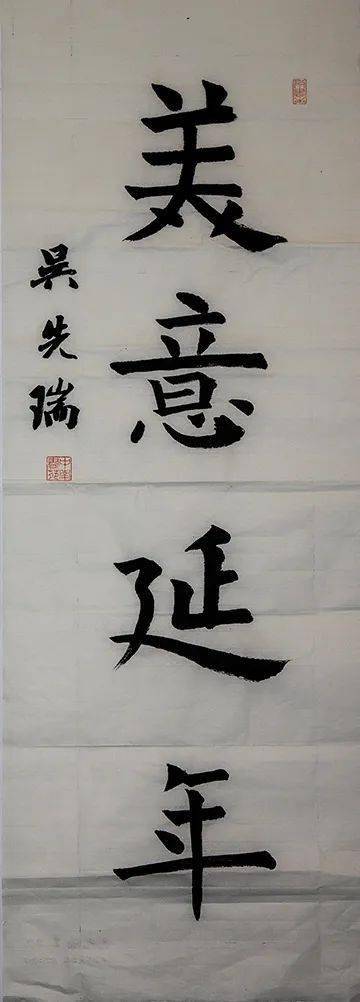 美意延年
吴先瑞